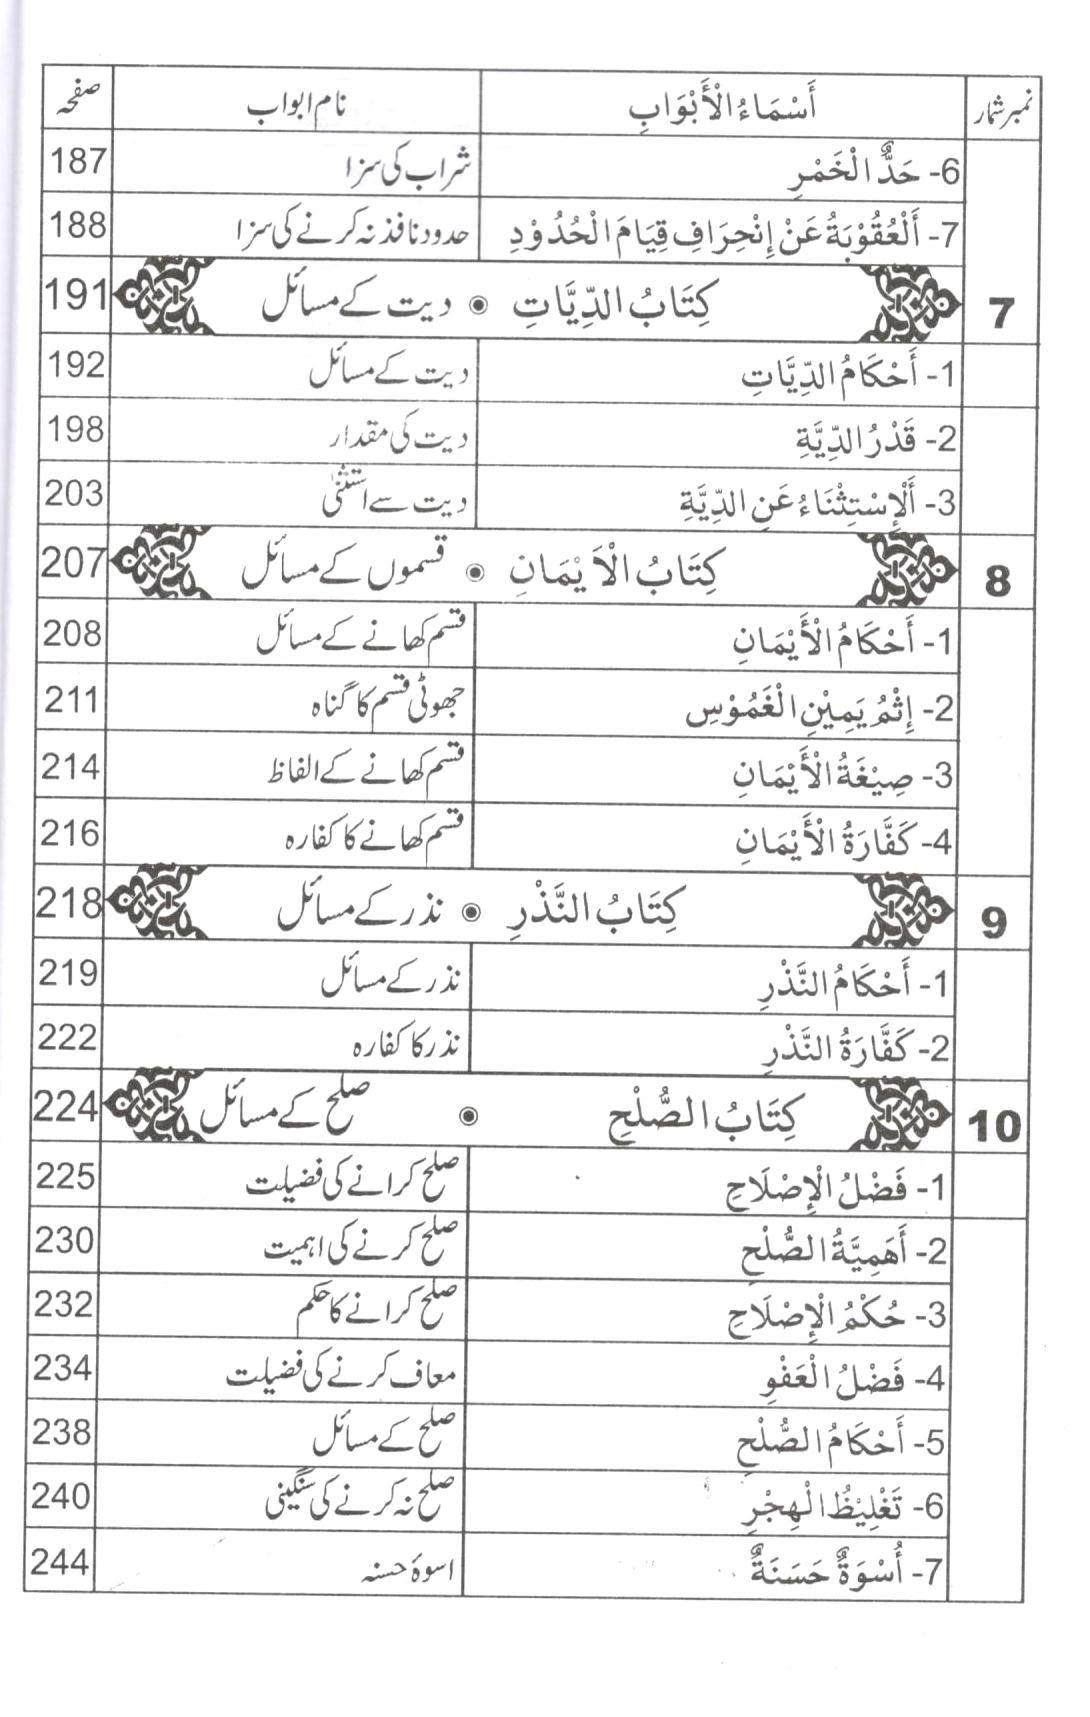 نمبر شمار أَسْمَاءُ الْأَبْوَابِ نام ابواب صفحہ
6- حَدُّ الْخَمْرِ شراب کی سزا 187
7- أَلْعُقُوْبَةُ عَنْ إِنْحِرَافِ قِيَامَ الْحُدُوْدِ حدود نافذ نہ کرنے کی سزا 188
7 كِتَابُ الدِّيَّاتِ ◉ دیت کے مسائل 191
1- أَحْكَامُ الدِّيَّاتِ دیت کے مسائل 192
2- قَدْرُ الدِّيَّةِ دیت کی مقدار 198
3- أَلْإِسْتِثْنَاءُ عَنِ الدِّيَّةِ دیت سے استثنیٰ 203
8 كِتَابُ الْاَيْمَانِ ◉ قسموں کے مسائل 207
1- أَحْكَامُ الْأَيْمَانِ قسم کھانے کے مسائل 208
2- إِثْمُ يَمِيْنِ الْغَمُوْسِ جھوٹی قسم کا گناہ 211
3- صِيْغَةُ الْأَيْمَانِ قسم کھانے کے الفاظ 214
4- كَفَّارَةُ الْأَيْمَانِ قسم کھانے کا کفارہ 216
9 كِتَابُ النَّذْرِ ◉ نذر کے مسائل 218
1- أَحْكَامُ النَّذْرِ نذر کے مسائل 219
2- كَفَّارَةُ النَّذْرِ نذر کا کفارہ 222
10 كِتَابُ الصُّلْحِ ◉ صلح کے مسائل 224
1- فَضْلُ الْإِصْلَاحِ صلح کرانے کی فضیلت 225
2- أَهَمِيَّةُ الصُّلْحِ صلح کرنے کی اہمیت 230
3- حُكْمُ الْإِصْلَاحِ صلح کرانے کا حکم 232
4- فَضْلُ الْعَفْوِ معاف کرنے کی فضیلت 234
5- أَحْكَامُ الصُّلْحِ صلح کے مسائل 238
6- تَغْلِيْظُ الْهِجْرِ صلح نہ کرنے کی سنگینی 240
7- أُسْوَةٌ حَسَنَةٌ اسوۂ حسنہ 244